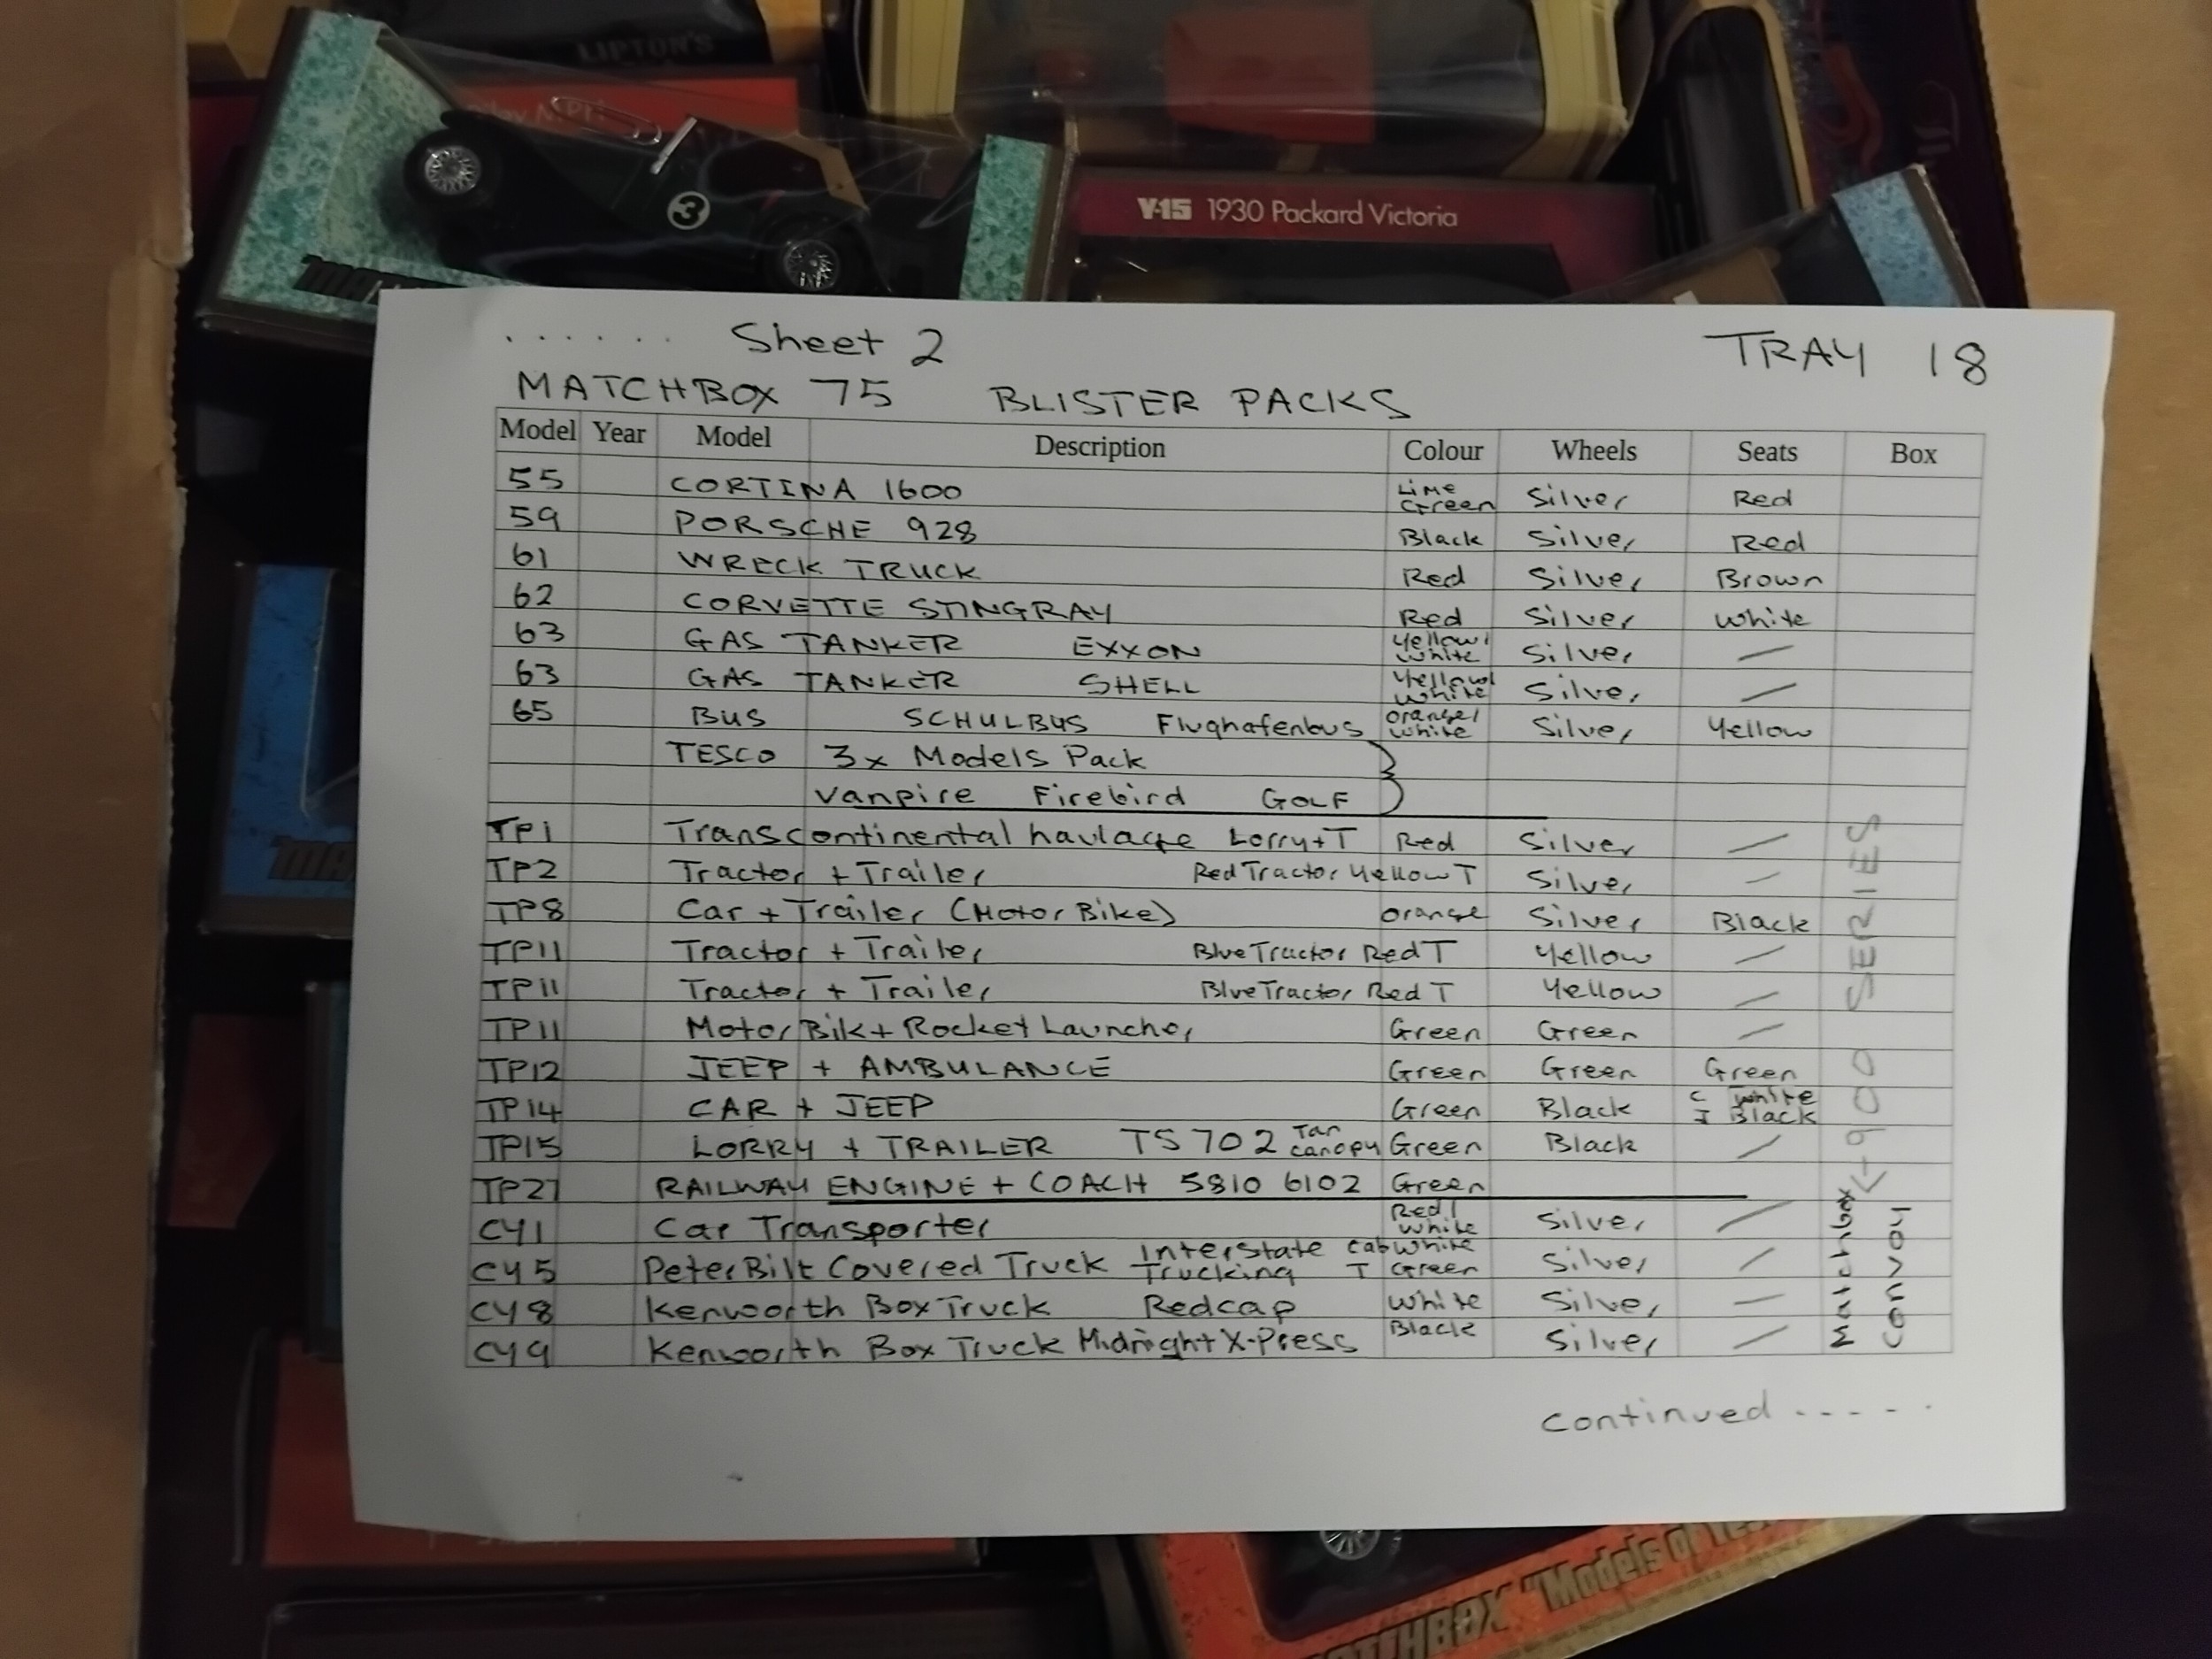 LIPTON'S
3
Y-15 1930 Packard Victoria
...... Sheet 2 TRAY 18
MATCHBOX 75 BLISTER PACKS
Model Year Model Description Colour Wheels Seats Box
55 CORTINA 1600 Lime Green Silver Red
59 PORSCHE 928 Black Silver Red
61 WRECK TRUCK Red Silver Brown
62 CORVETTE STINGRAY Red Silver White
63 GAS TANKER EXXON Yellow/ White Silver —
63 GAS TANKER SHELL Yellow/ White Silver —
65 BUS SCHULBUS Flughafenbus orange/ white Silver Yellow
TESCO 3x Models Pack
Vanpire Firebird GOLF
TP1 Transcontinental haulage Lorry+T Red Silver —
TP2 Tractor + Trailer Red Tractor Yellow T Silver —
TP8 Car + Trailer (Motor Bike) orange Silver Black
TP11 Tractor + Trailer Blue Tractor Red T Yellow —
TP11 Tractor + Trailer Blue Tractor Red T Yellow —
TP11 Motor Bik + Rocket Launcher Green Green —
TP12 JEEP + AMBULANCE Green Green Green
TP14 CAR + JEEP Green Black C White J Black
TP15 LORRY + TRAILER TS 702 Tan canopy Green Black —
TP27 RAILWAY ENGINE + COACH 5810 6102 Green
CY1 Car Transporter Red/ White Silver —
CY5 PeterBilt Covered Truck Interstate Trucking cab White T Green Silver —
CY8 Kenworth Box Truck Redcap White Silver —
CY9 Kenworth Box Truck Midnight X-Press Black Silver —
← 900 SERIES
Matchbox
Convoy
continued .....
MATCHBOX "Models of